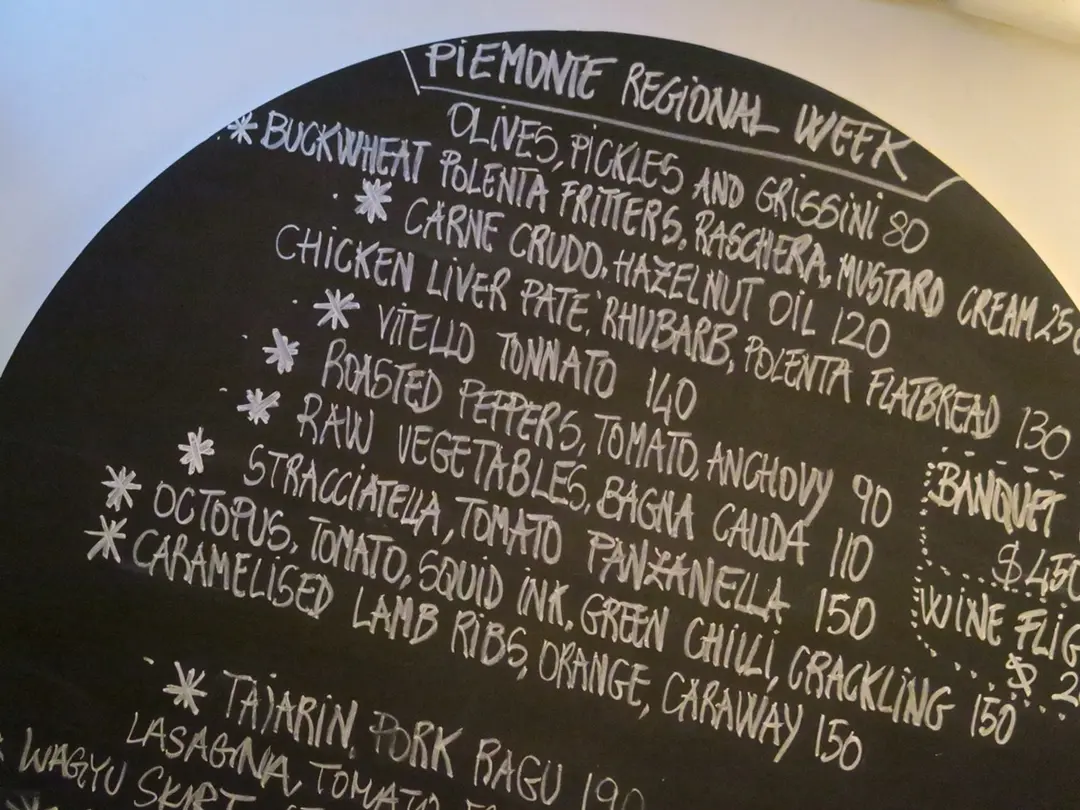 PIEMONTE REGIONAL WEEK
OLIVES, PICKLES AND GRISSINI 80
* BUCKWHEAT POLENTA FRITTERS, RASCHERA, MUSTARD CREAM 25
* CARNE CRUDO, HAZELNUT OIL 120
CHICKEN LIVER PATE, RHUBARB, POLENTA FLATBREAD 130
* VITELLO TONNATO 140
* ROASTED PEPPERS, TOMATO, ANCHOVY 90
* RAW VEGETABLES, BAGNA CAUDA 110
* STRACCIATELLA, TOMATO PANZANELLA 150
* OCTOPUS, TOMATO, SQUID INK, GREEN CHILLI, CRACKLING 150
* CARAMELISED LAMB RIBS, ORANGE, CARAWAY 150
* TAJARIN, PORK RAGU 190
LASAGNA, TOMATO,
* WAGYU SKIRT
BANQUET
$450
WINE FLIG
$ 2